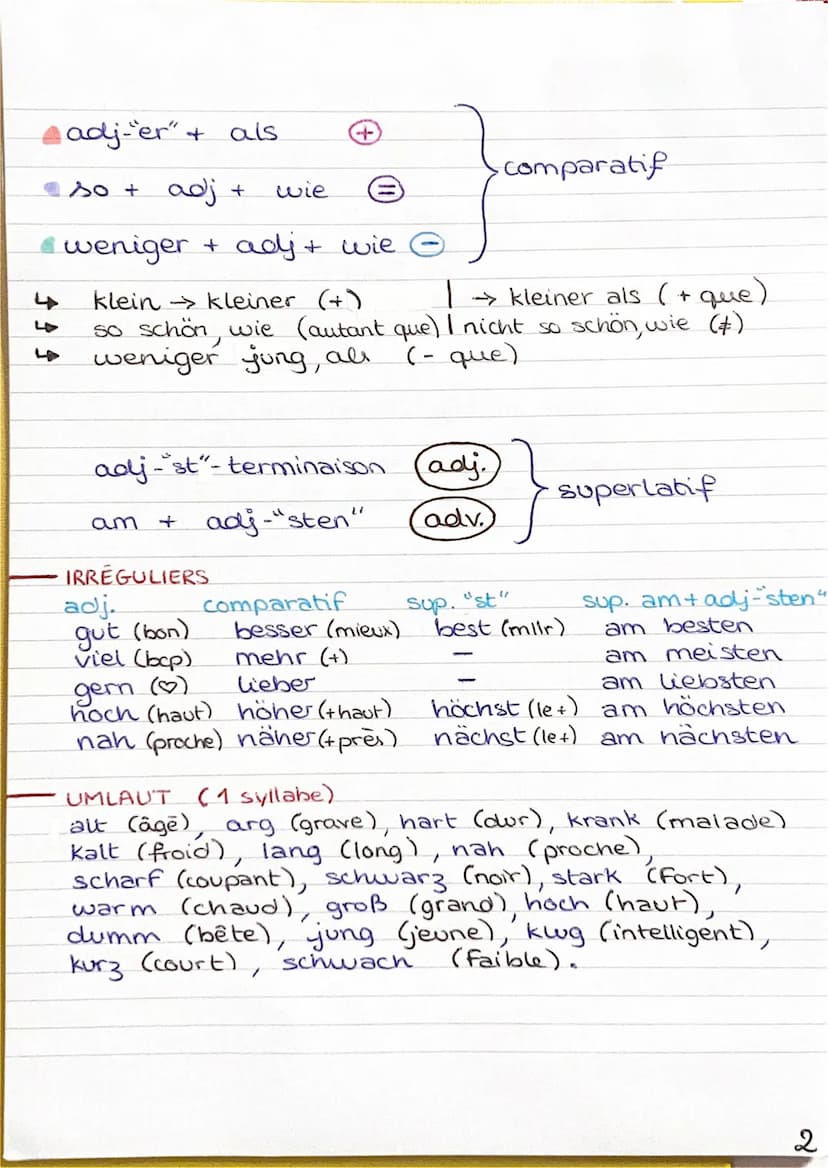 adj-"er" + als (+)
so + adj + wie (=)
weniger + adj + wie (-)
comparatif
↳ klein → kleiner (+) | → kleiner als (+ que)
↳ so schön, wie (autant que) | nicht so schön, wie (≠)
↳ weniger jung, als (- que)
adj-"st"-terminaison (adj.)
am + adj-"sten" (adv.)
superlatif
IRRÉGULIERS
adj. comparatif sup. "st" sup. am + adj-"sten"
gut (bon) besser (mieux) best (millr) am besten
viel (bcp) mehr (+) - am meisten
gern (♡) lieber - am liebsten
hoch (haut) höher (+haut) höchst (le+) am höchsten
nah (proche) näher (+près) nächst (le+) am nächsten
UMLAUT (1 syllabe)
alt (âgé), arg (grave), hart (dur), krank (malade)
kalt (froid), lang (long), nah (proche),
scharf (coupant), schwarz (noir), stark (fort),
warm (chaud), groß (grand), hoch (haut),
dumm (bête), jung (jeune), klug (intelligent),
kurz (court), schwach (faible).
2